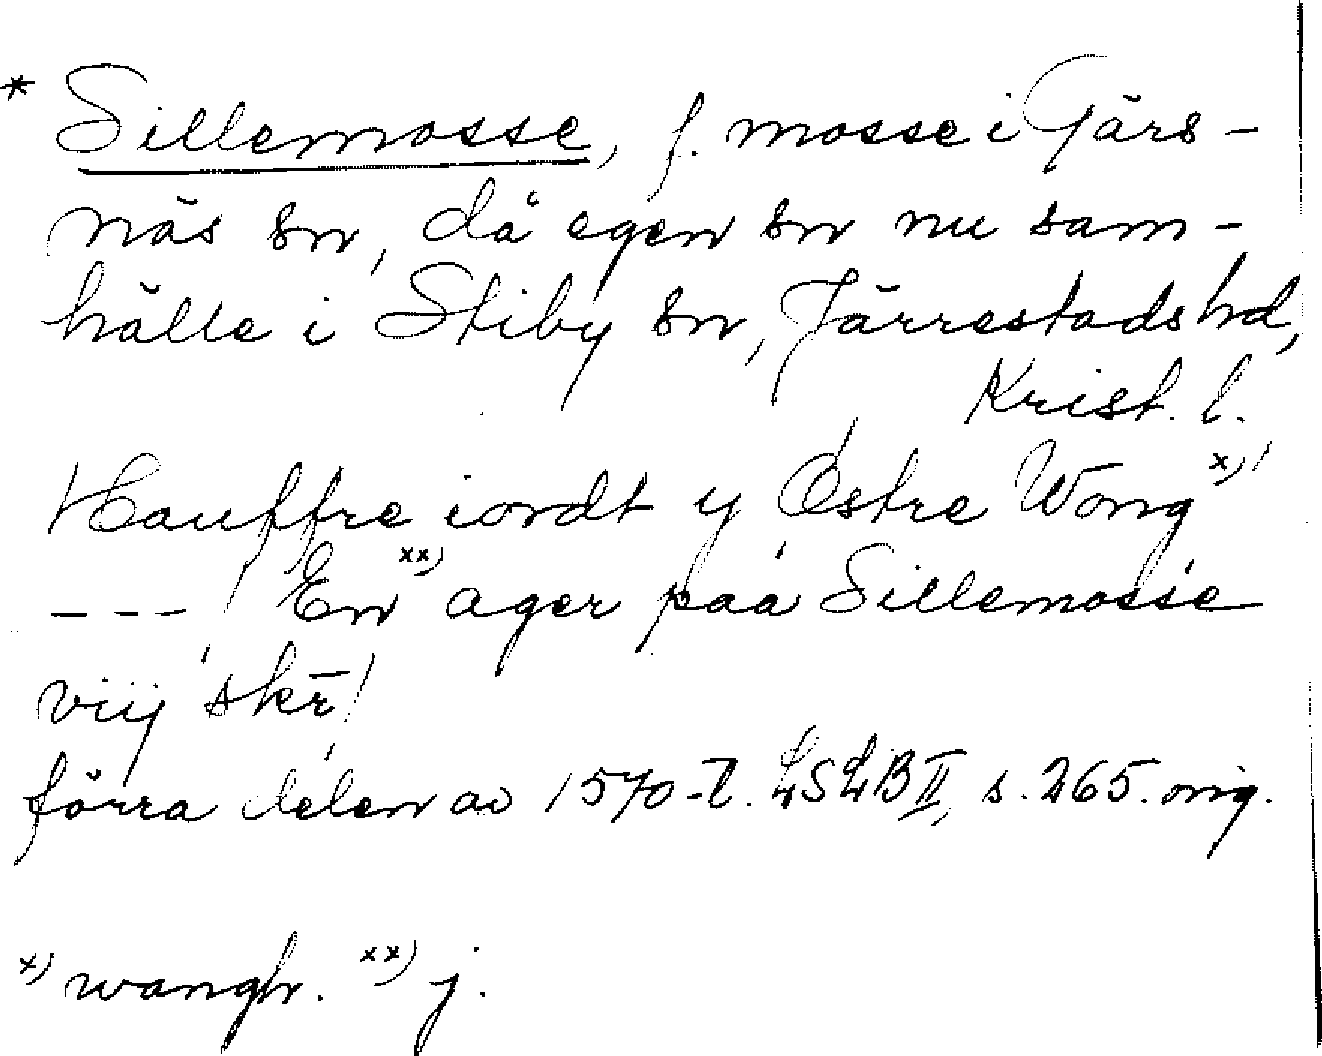 * Sillemosse, f. mosse i Gärs-
näs sn, då egen sn nu sam-
hälle i Stiby sn, Järrestads hd,
Krist. l.
Hauffre iordt y Østre Wong x)
--- En xx) ager paa Sillemosse
viij skr̄
förra delen av 1570-t. LSLB II, s. 265. orig.
x) wangh. xx) j.